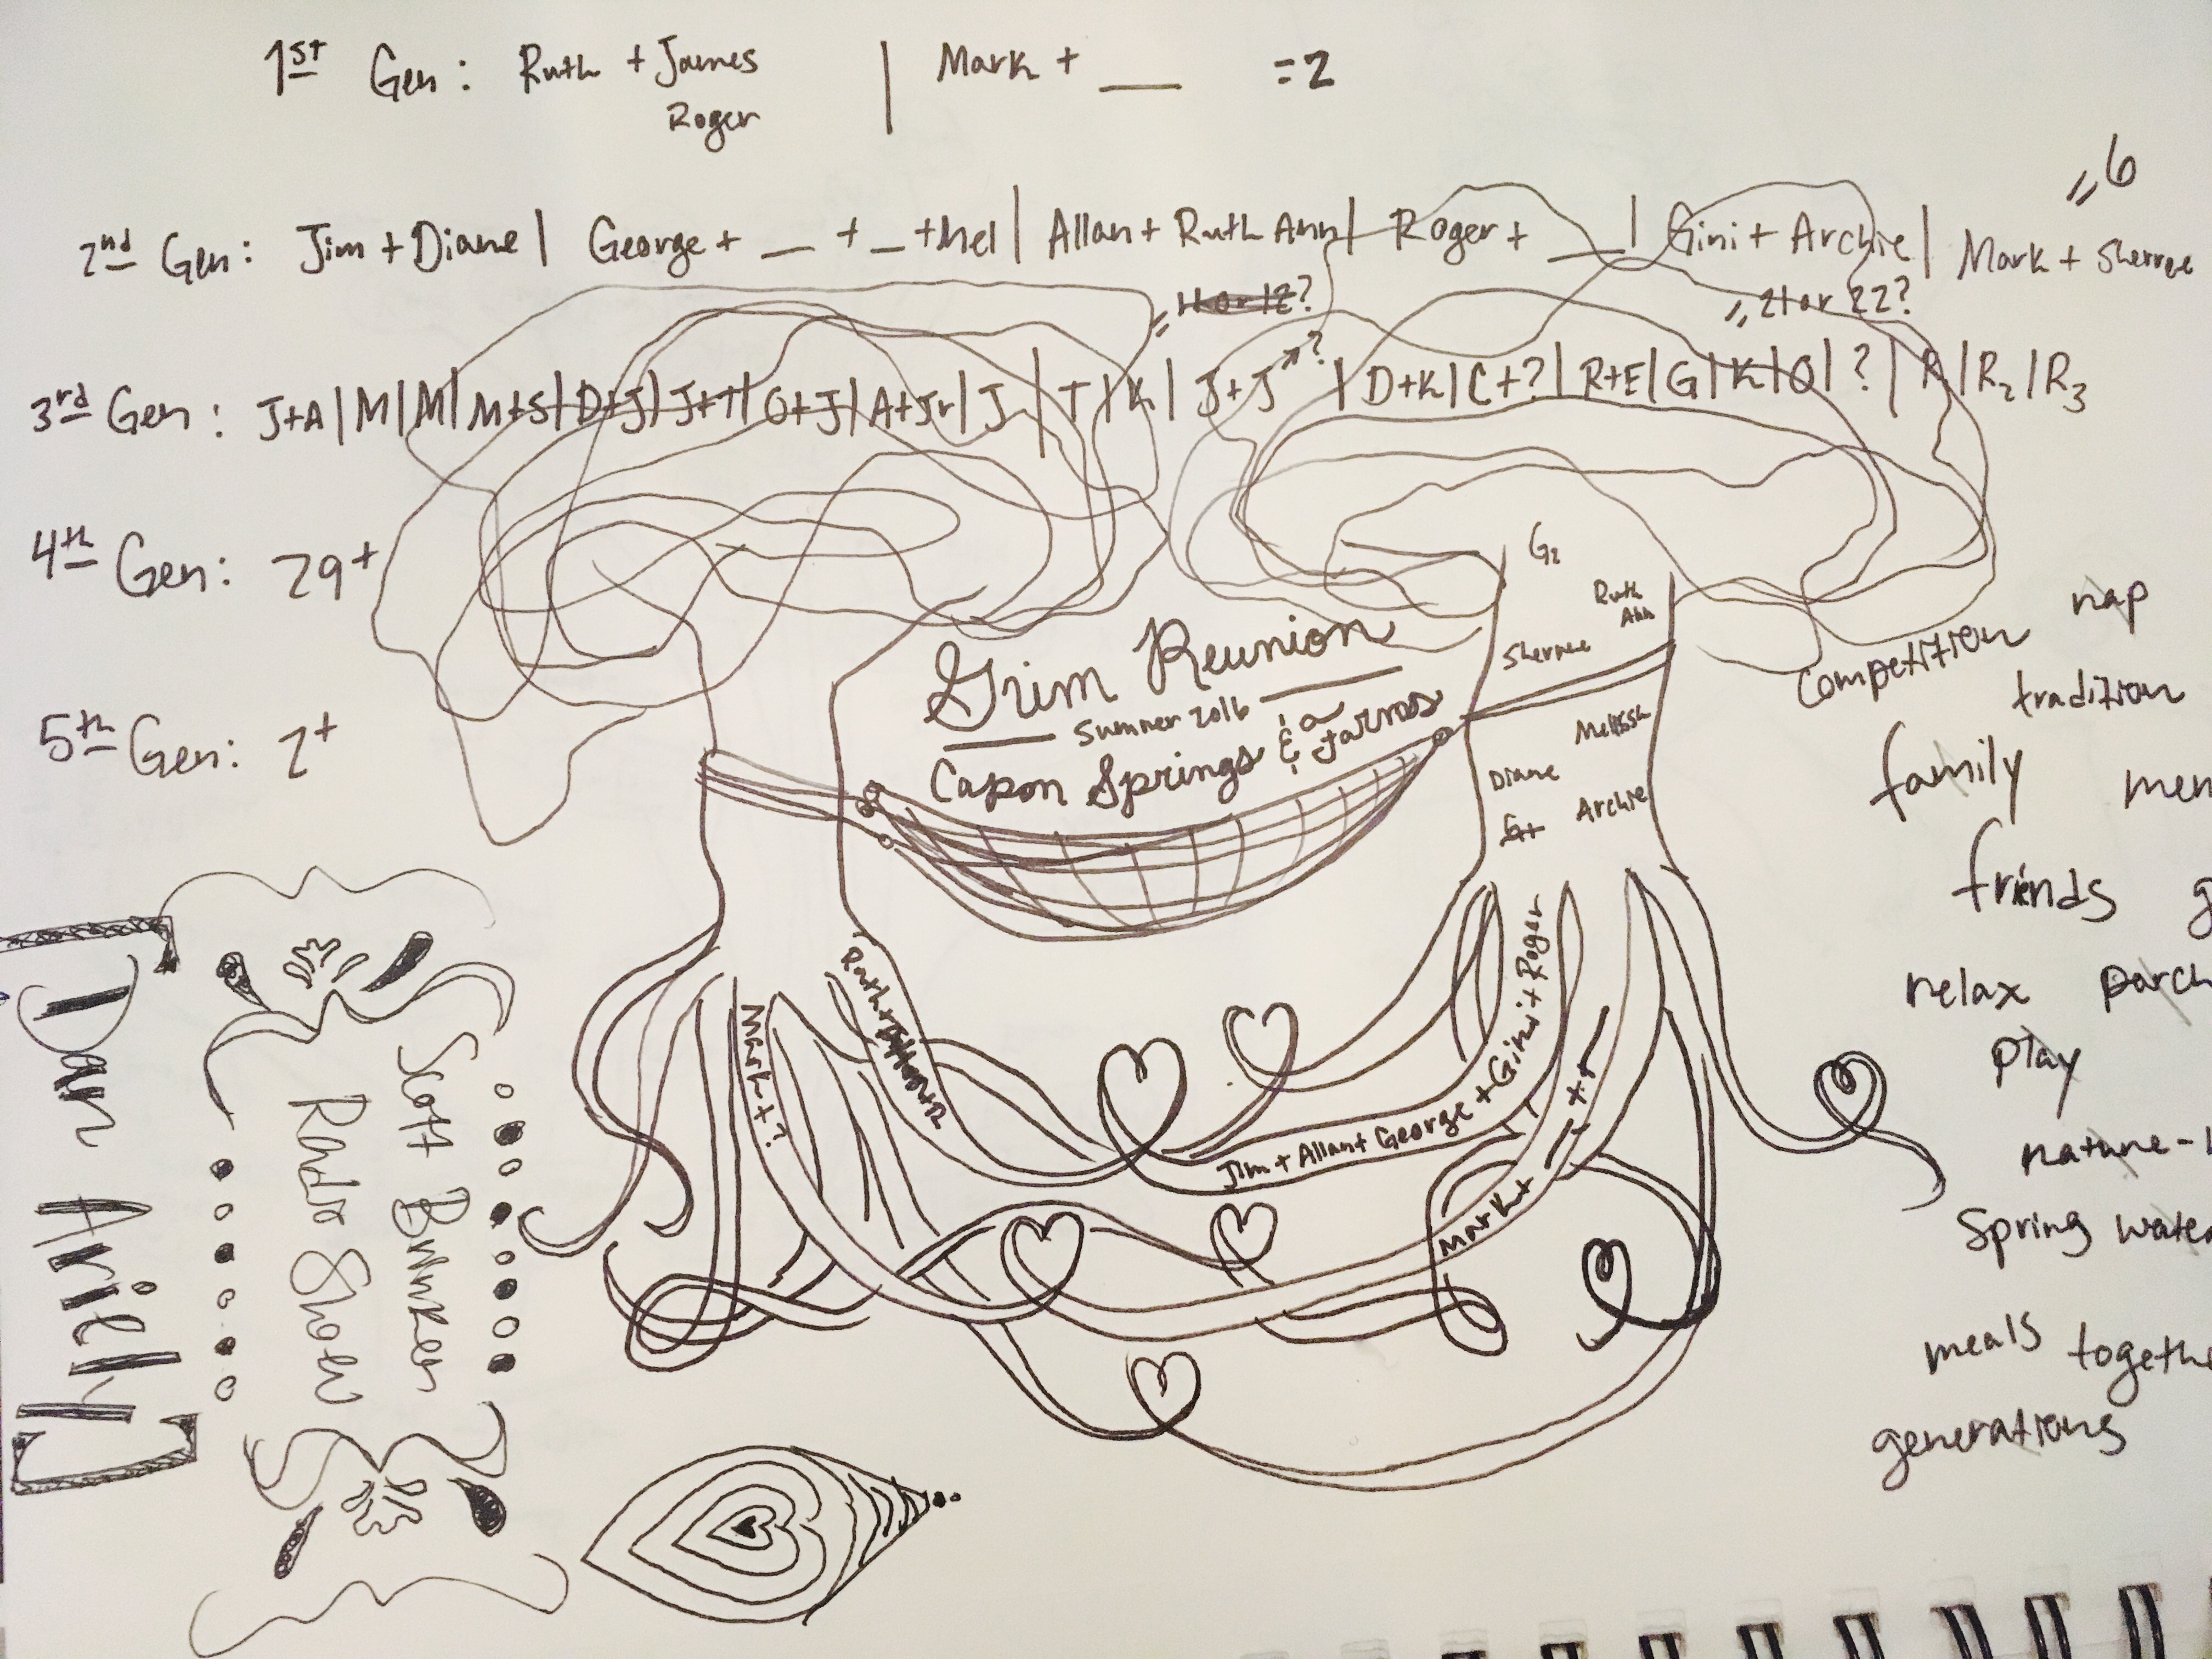 1st Gen: Ruth + James | Mark + __ = 2
Roger
= 6
2nd Gen: Jim + Diane | George + __ + __ + Mel | Allan + Ruth Ann | Roger + __ | Gini + Archie | Mark + Sherree
= 11 or 12?
= 21 or 22?
3rd Gen: J+A | M | M | M+S | D+J | J+T | O+J | A+Jr | J | T | K | J+J ? | D+K | C+? | R+E | G | K | O | ? | R | R2 | R3
4th Gen: 29+
5th Gen: 2+
Grim Reunion
Summer 2016
Capon Springs & Farms
G2
Ruth
Ann
Sherree
Melissa
Diane
Archie
Mark + ?
Ruth +
Jim + Allan + George + Gini + Roger
Mark +
nap
competition
tradition
family
friends
relax
play
nature-
Spring water
meals together
generations
Dan Ariely
Scott Brunker
Radio Show